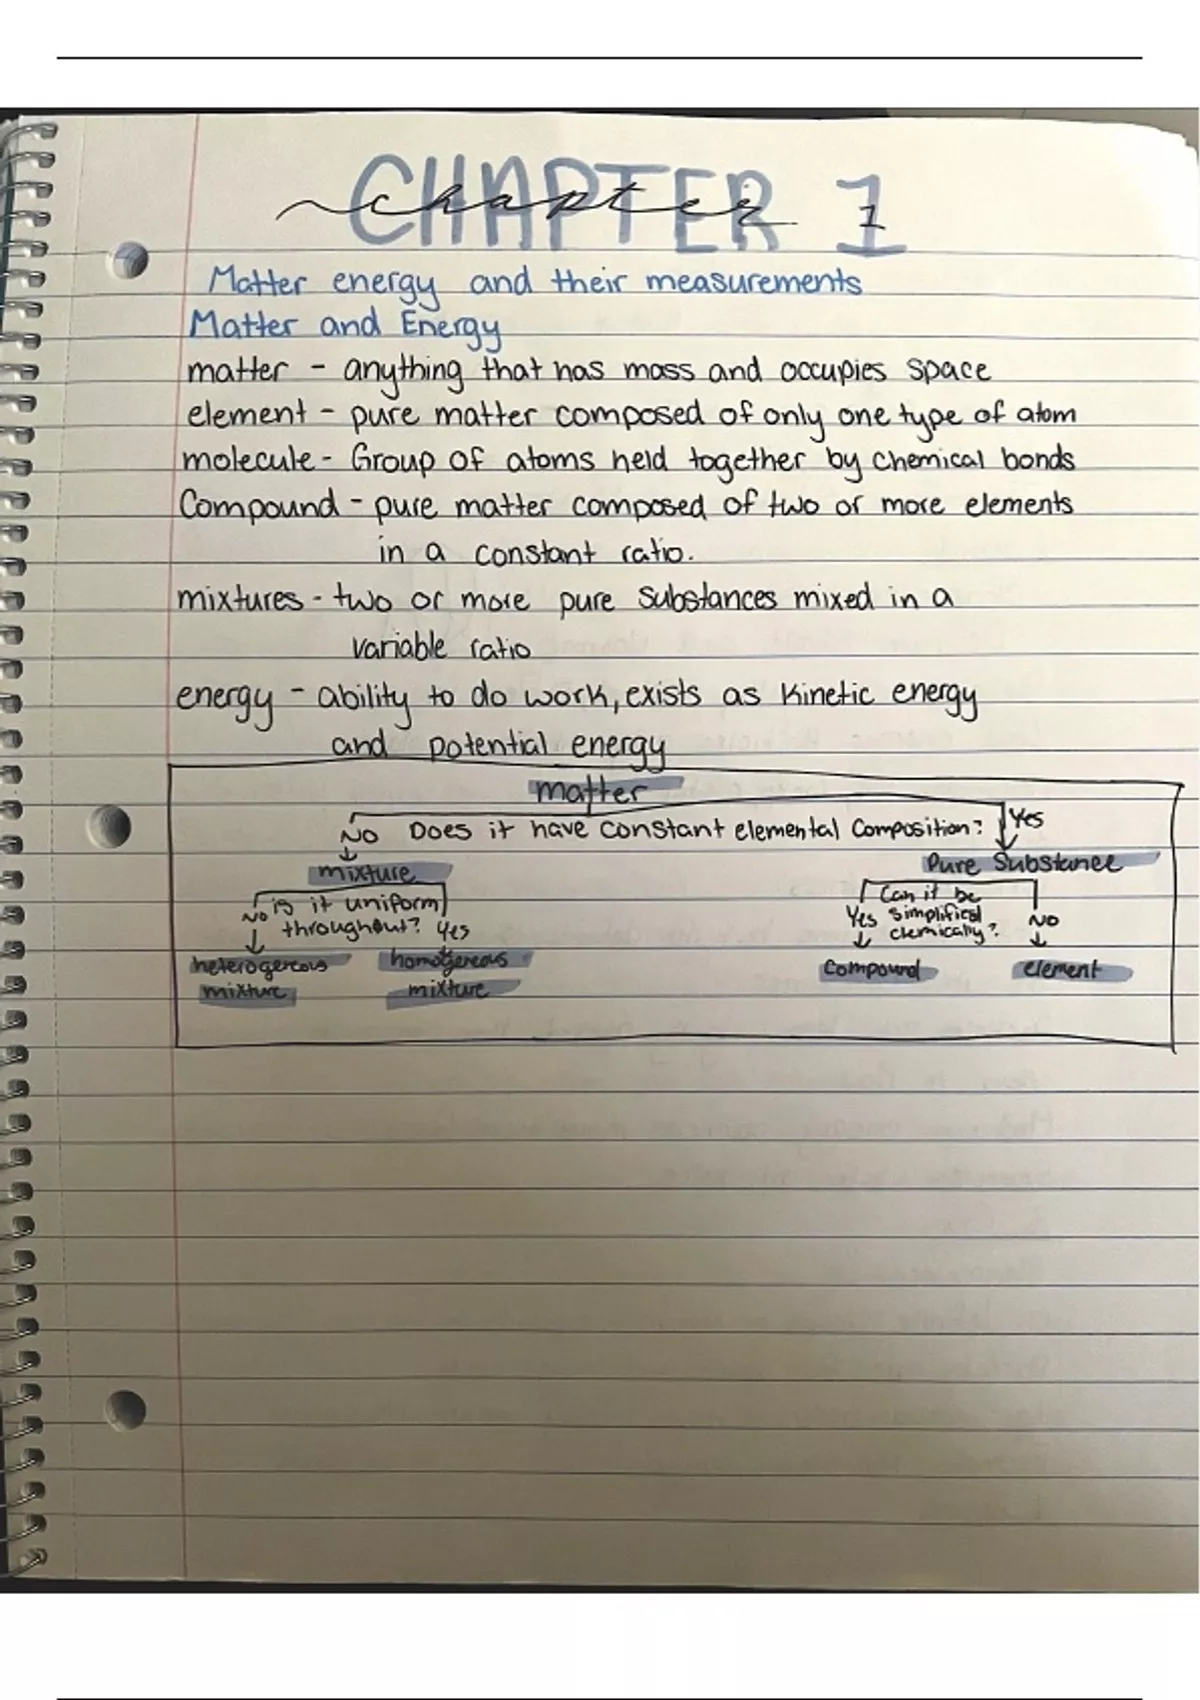 CHAPTER 1
chapter 1
Matter energy and their measurements
Matter and Energy
matter - anything that has mass and occupies space
element - pure matter composed of only one type of atom
molecule - Group of atoms held together by chemical bonds
Compound - pure matter composed of two or more elements
in a constant ratio.
mixtures - two or more pure substances mixed in a
variable ratio
energy - ability to do work, exists as kinetic energy
and potential energy
matter
NO Does it have constant elemental composition? Yes
mixture
Pure Substance
is it uniform
NO throughout? Yes
Can it be
Yes simplified NO
chemically?
heterogereous
mixture
homogereous
mixture
Compound
element